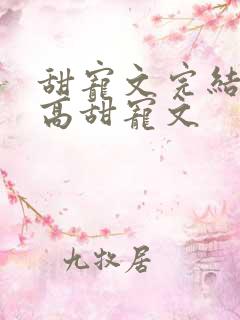 甜寵文完結
高甜寵文
九牧居